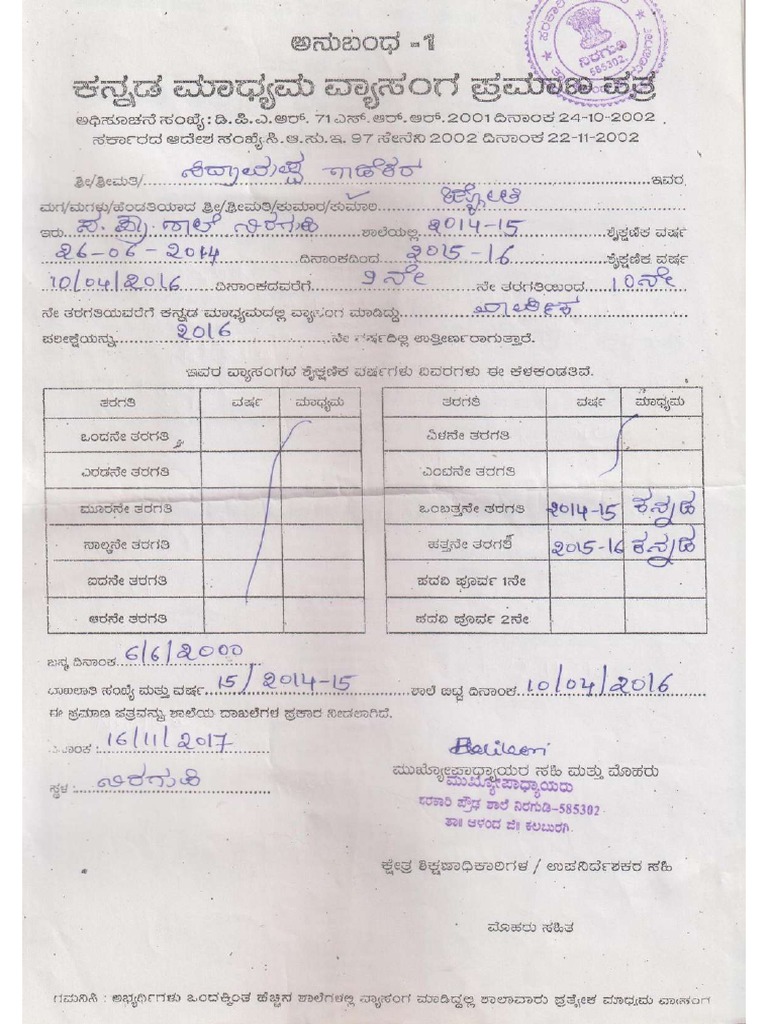 ನಿರಗುಡಿ
585302.
ಅನುಬಂಧ -1
ಕನ್ನಡ ಮಾಧ್ಯಮ ವ್ಯಾಸಂಗ ಪ್ರಮಾಣ ಪತ್ರ
ಅಧಿಸೂಚನೆ ಸಂಖ್ಯೆ: ಡಿ.ಪಿ.ಎ.ಆರ್. 71 ಎಸ್.ಆರ್.ಆರ್. 2001 ದಿನಾಂಕ 24-10-2002
ಸರ್ಕಾರದ ಆದೇಶ ಸಂಖ್ಯೆ.ಸಿ.ಆ.ಸು.ಇ. 97 ಸೇನೆನಿ 2002 ದಿನಾಂಕ 22-11-2002
ಶ್ರೀ/ಶ್ರೀಮತಿ/ ಇವರ
ಮಗ/ಮಗಳು/ಹೆಂಡತಿಯಾದ ಶ್ರೀ/ಶ್ರೀಮತಿ/ಕುಮಾರ/ಕುಮಾರಿ ಜ್ಯೋತಿ
ಇರು ಸ.ಪ್ರೌ. ಶಾಲೆ ನಿರಗುಡಿ ಶಾಲೆಯಲ್ಲಿ 2014-15 ಶೈಕ್ಷಣಿಕ ವರ್ಷ
26-06-2014 ದಿನಾಂಕದಿಂದ 2015-16 ಶೈಕ್ಷಣಿಕ ವರ್ಷ
10/04/2016 ದಿನಾಂಕದವರೆಗೆ 9ನೇ ನೇ ತರಗತಿಯಿಂದ 10ನೇ
ನೇ ತರಗತಿಯವರೆಗೆ ಕನ್ನಡ ಮಾಧ್ಯಮದಲ್ಲಿ ವ್ಯಾಸಂಗ ಮಾಡಿದ್ದು ವಾರ್ಷಿಕ
ಪರೀಕ್ಷೆಯನ್ನು 2016 ನೇ ವರ್ಷದಲ್ಲಿ ಉತ್ತೀರ್ಣರಾಗುತ್ತಾರೆ.
ಇವರ ವ್ಯಾಸಂಗದ ಶೈಕ್ಷಣಿಕ ವರ್ಷಗಳು ವಿವರಗಳು ಈ ಕೆಳಕಂಡತಿವೆ.
ತರಗತಿ ವರ್ಷ ಮಾಧ್ಯಮ ತರಗತಿ ವರ್ಷ ಮಾಧ್ಯಮ
ಒಂದನೇ ತರಗತಿ ಏಳನೇ ತರಗತಿ
ಎರಡನೇ ತರಗತಿ ಎಂಟನೇ ತರಗತಿ
ಮೂರನೇ ತರಗತಿ ಒಂಬತ್ತನೇ ತರಗತಿ 2014-15 ಕನ್ನಡ
ನಾಲ್ಕನೇ ತರಗತಿ ಹತ್ತನೇ ತರಗತಿ 2015-16 ಕನ್ನಡ
ಐದನೇ ತರಗತಿ ಪದವಿ ಪೂರ್ವ 1ನೇ
ಆರನೇ ತರಗತಿ ಪದವಿ ಪೂರ್ವ 2ನೇ
ಜನ್ಮ ದಿನಾಂಕ 6/6/2000
ದಾಖಲಾತಿ ಸಂಖ್ಯೆ ಮತ್ತು ವರ್ಷ 15/2014-15 ಶಾಲೆ ಬಿಟ್ಟ ದಿನಾಂಕ 10/04/2016
ಈ ಪ್ರಮಾಣ ಪತ್ರವನ್ನು ಶಾಲೆಯ ದಾಖಲೆಗಳ ಪ್ರಕಾರ ನೀಡಲಾಗಿದೆ.
ದಿನಾಂಕ : 16/11/2017
ಸ್ಥಳ : ನಿರಗುಡಿ
ಮುಖ್ಯೋಪಾಧ್ಯಾಯರ ಸಹಿ ಮತ್ತು ಮೊಹರು
ಮುಖ್ಯೋಪಾಧ್ಯಾಯರು
ಸರಕಾರಿ ಪ್ರೌಢ ಶಾಲೆ ನಿರಗುಡಿ-585302
ತಾ: ಆಳಂದ ಜಿ: ಕಲಬುರಗಿ.
ಕ್ಷೇತ್ರ ಶಿಕ್ಷಣಾಧಿಕಾರಿಗಳ / ಉಪನಿರ್ದೇಶಕರ ಸಹಿ
ಮೊಹರು ಸಹಿತ
ಗಮನಿಸಿ : ಅಭ್ಯರ್ಥಿಗಳು ಒಂದಕ್ಕಿಂತ ಹೆಚ್ಚಿನ ಶಾಲೆಗಳಲ್ಲಿ ವ್ಯಾಸಂಗ ಮಾಡಿದ್ದಲ್ಲಿ ಶಾಲಾವಾರು ಪ್ರತ್ಯೇಕ ಮಾಧ್ಯಮ ವ್ಯಾಸಂಗ